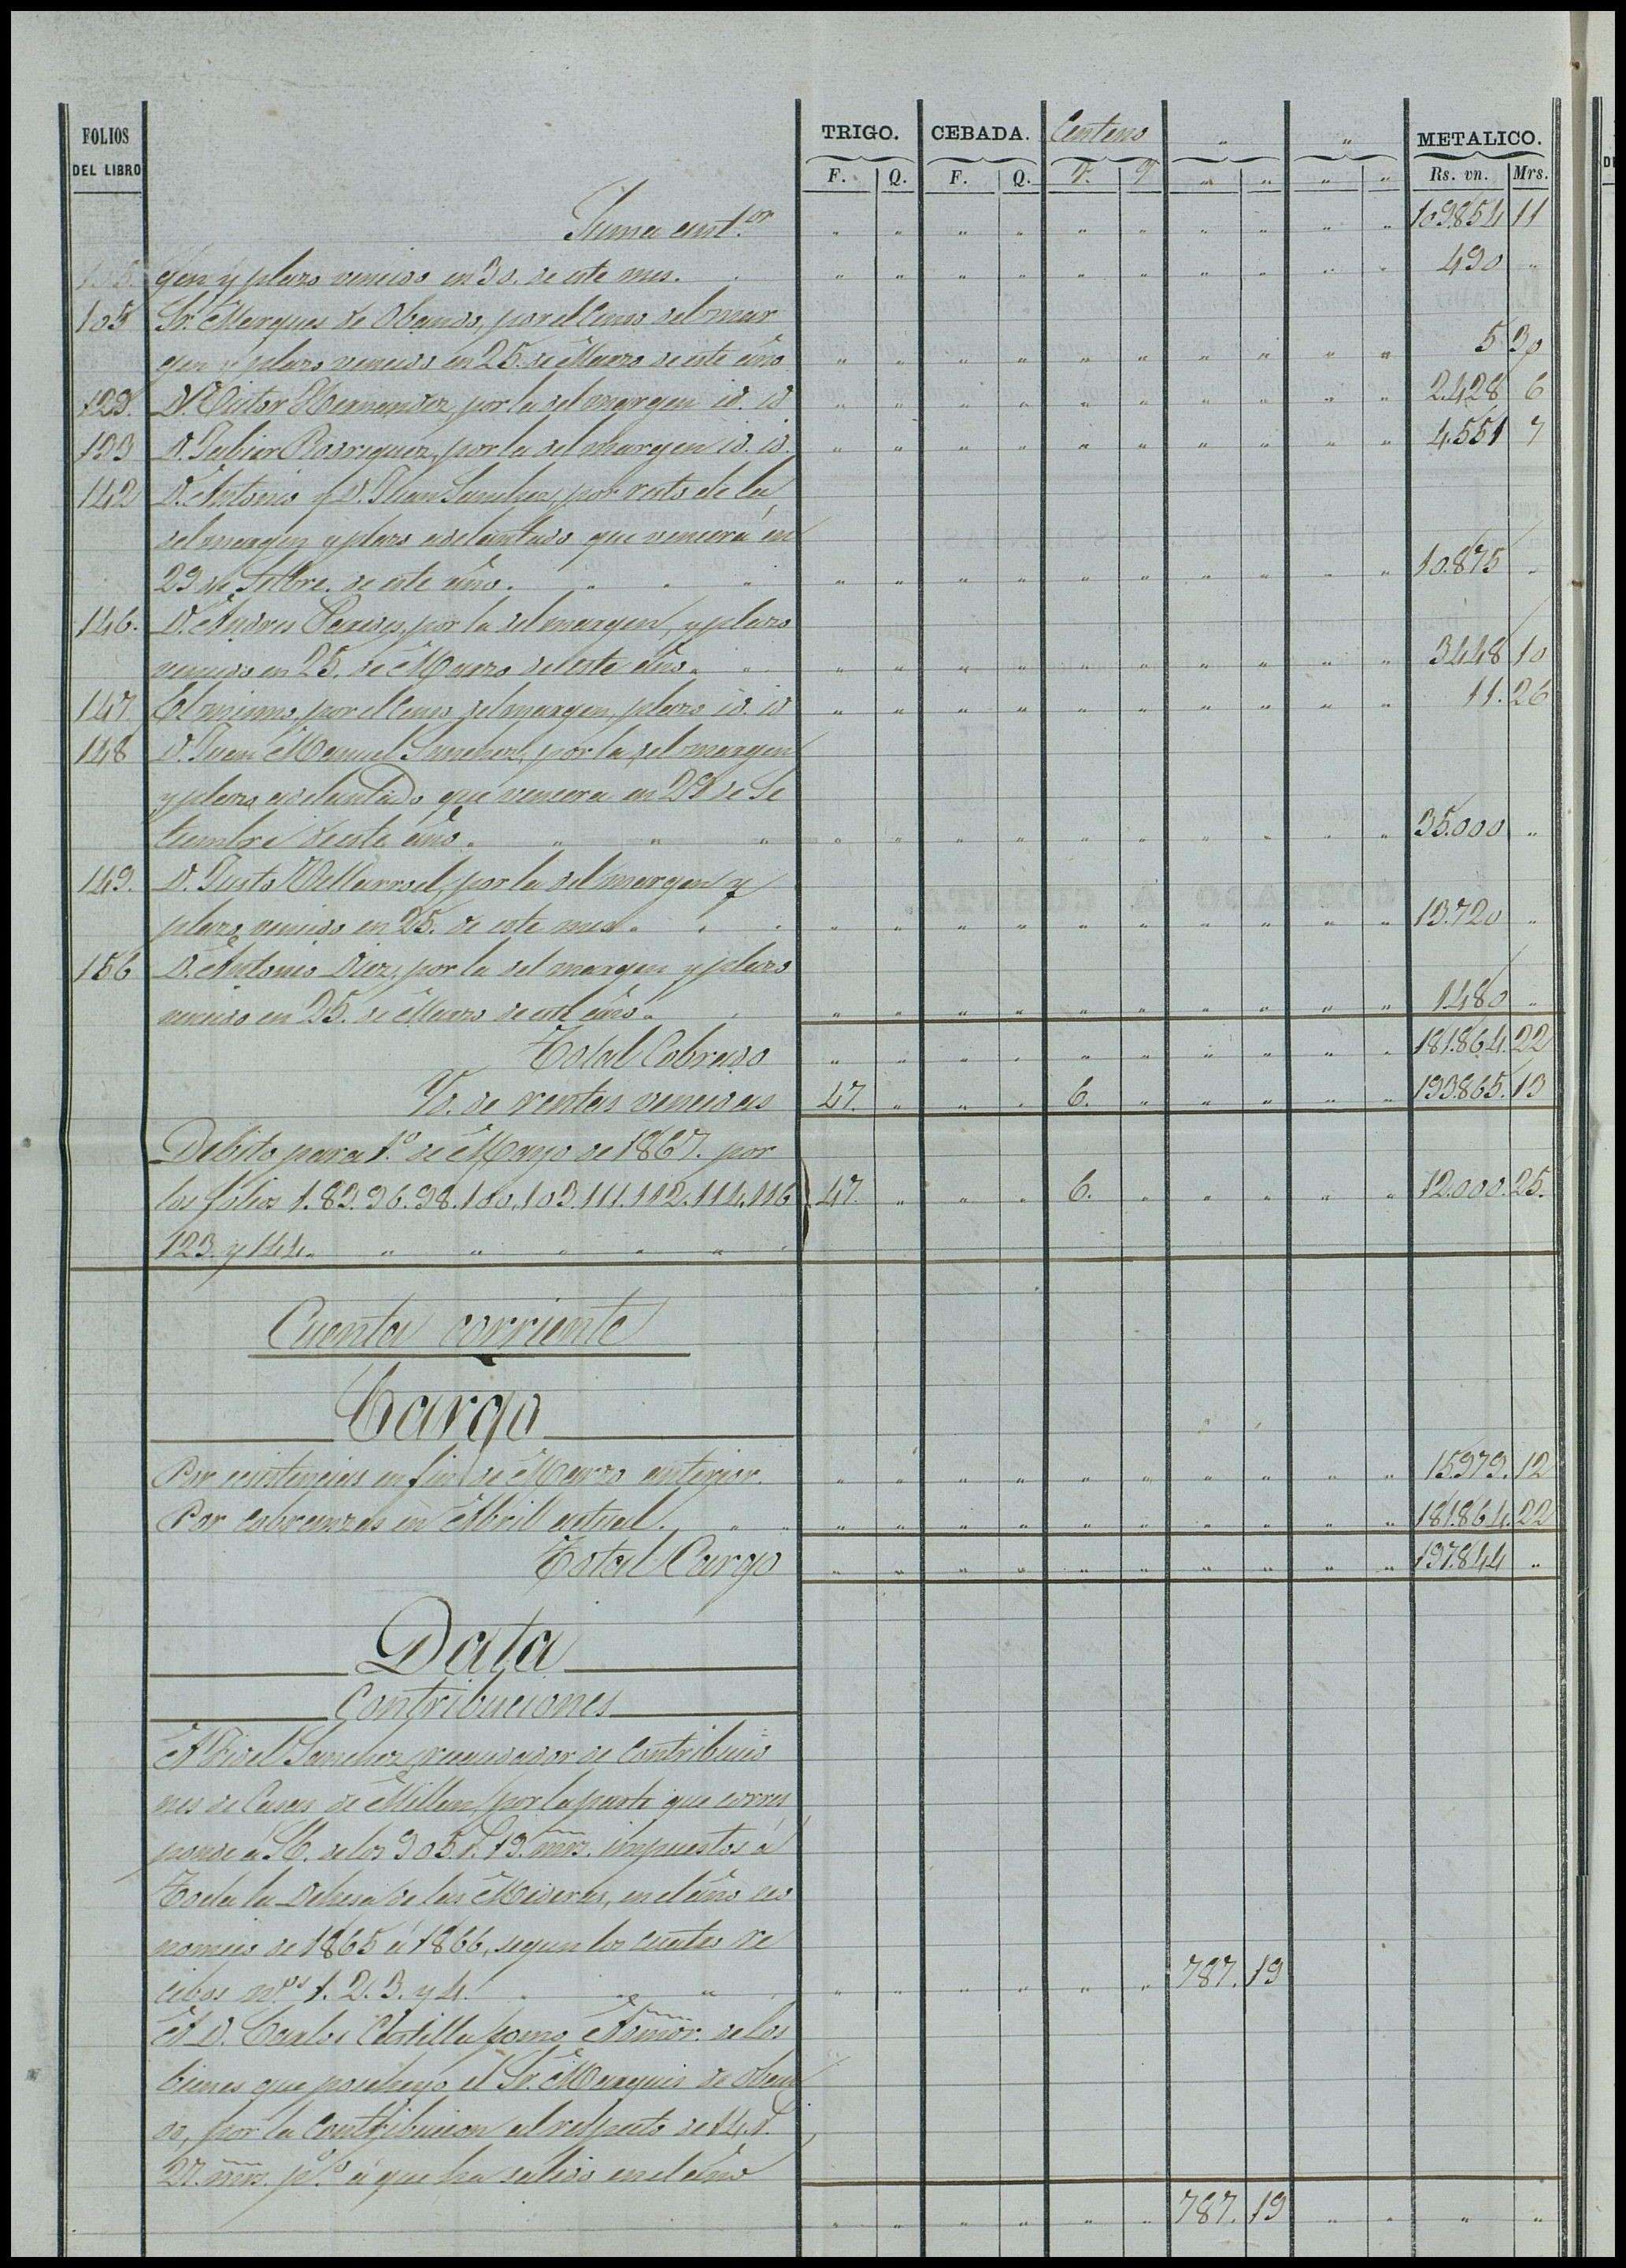 FOLIOS DEL LIBRO TRIGO. CEBADA. Centeno " " METALICO.
F. Q. F. Q. F. Q " " " " Rs. vn. Mrs.
Suma ant.or 109.854 11
gen y plazo vencido en 30. de este mes. 490 "
105 Sr. Marques de Obando, por el Censo del mar
gen y plazo vencido en 25. de Marzo de este año 5 30
129. D. Victor Hernandez, por la del margen id. id. 2.428 6
133 D. Julian Rodriguez, por la del margen id. id. 4.551 7
142 D. Antonio y D. Juan Sanchez, por resto de la
del margen y plazo adelantado que vencerá en
29 de Setbre. de este año. 10.875 "
146. D. Andres Paredes, por la del margen, y plazo
vencido en 25. de Marzo de este año. 3448 10
147. El mismo, por el Censo del margen, plazo id. id 11. 26
148 D. Juan Manuel Sanchez, por la del margen
y plazo adelantado que vencerá en 29 de Se
tiembre de este año. 35.000 "
149. D. Justo Villarroel, por la del margen y
plazo vencido en 25. de este mes. 13.720 "
156 D. Antonio Diez, por la del margen y plazo
vencido en 25. de Marzo de este año. 1480 "
Total Cobrado 181.864. 22
Id. de rentas vencidas 47. " " " 6. " " " " " 193.865. 13
Debito para 1.º de Mayo de 1867. por
los folios 1. 83. 96. 98. 100. 103. 111. 112. 114. 116 47. " " " 6. " " " " " 12.000. 25.
123. y 144.
Cuenta corriente
Cargo
Por existencias en fin de Marzo anterior. 15.979. 12
Por cobranzas en Abril actual. 181.864. 22
Total Cargo 197.844 "
Data
Contribuciones
A Fidel Sanchez, recaudador de Contribucio
nes de Casas de Millan, por la parte que corres
ponde a S.E. de los 905 r. 19. mrs. impuestos á
Toda la Dehesa de las Moheras, en el año eco
nomico de 1865 á 1866, segun los cuatro re
cibos n.os 1. 2. 3. y 4. 787. 19
A D. Carlos Clotilla, como Admor. de los
bienes que poseheyo el Sr. Marques de Oban
do, por la Contribucion al respecto de 14. r.
27. mrs. p.% á que ha salido en el año
787. 19